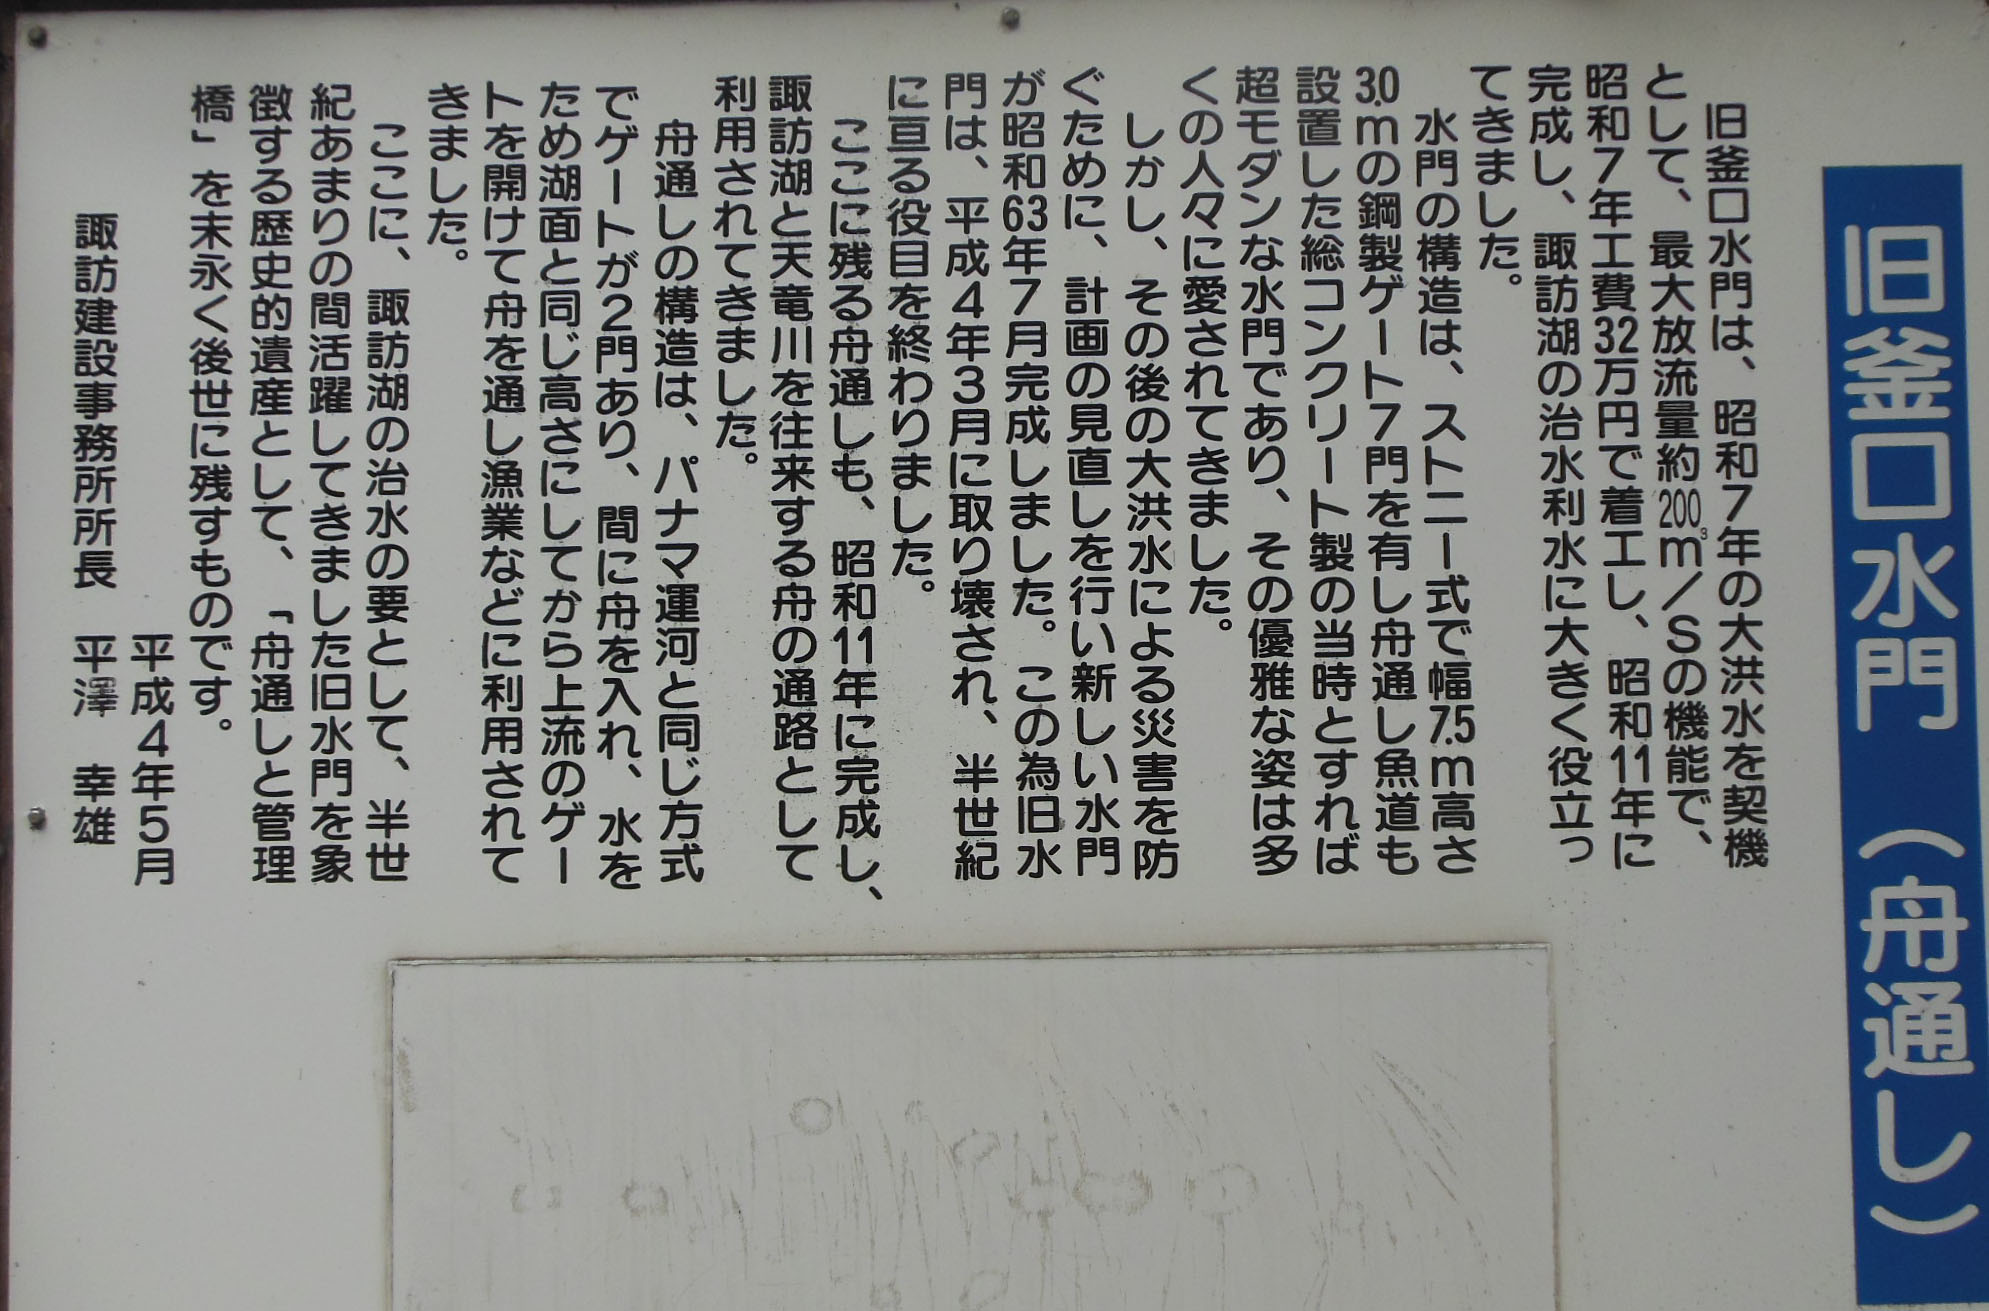 旧釜口水門（舟通し）
旧釜口水門は、昭和7年の大洪水を契機
として、最大放流量約200㎥/Sの機能で、
昭和7年工費32万円で着工し、昭和11年に
完成し、諏訪湖の治水利水に大きく役立っ
てきました。
水門の構造は、ストニー式で幅7.5m高さ
3.0mの鋼製ゲート7門を有し舟通し魚道も
設置した総コンクリート製の当時とすれば
超モダンな水門であり、その優雅な姿は多
くの人々に愛されてきました。
しかし、その後の大洪水による災害を防
ぐために、計画の見直しを行い新しい水門
が昭和63年7月完成しました。この為旧水
門は、平成4年3月に取り壊され、半世紀
に亘る役目を終わりました。
ここに残る舟通しも、昭和11年に完成し、
諏訪湖と天竜川を往来する舟の通路として
利用されてきました。
舟通しの構造は、パナマ運河と同じ方式
でゲートが2門あり、間に舟を入れ、水を
ため湖面と同じ高さにしてから上流のゲー
トを開けて舟を通し漁業などに利用されて
きました。
ここに、諏訪湖の治水の要として、半世
紀あまりの間活躍してきました旧水門を象
徴する歴史的遺産として、「舟通しと管理
橋」を末永く後世に残すものです。
平成4年5月
諏訪建設事務所所長　平澤　幸雄